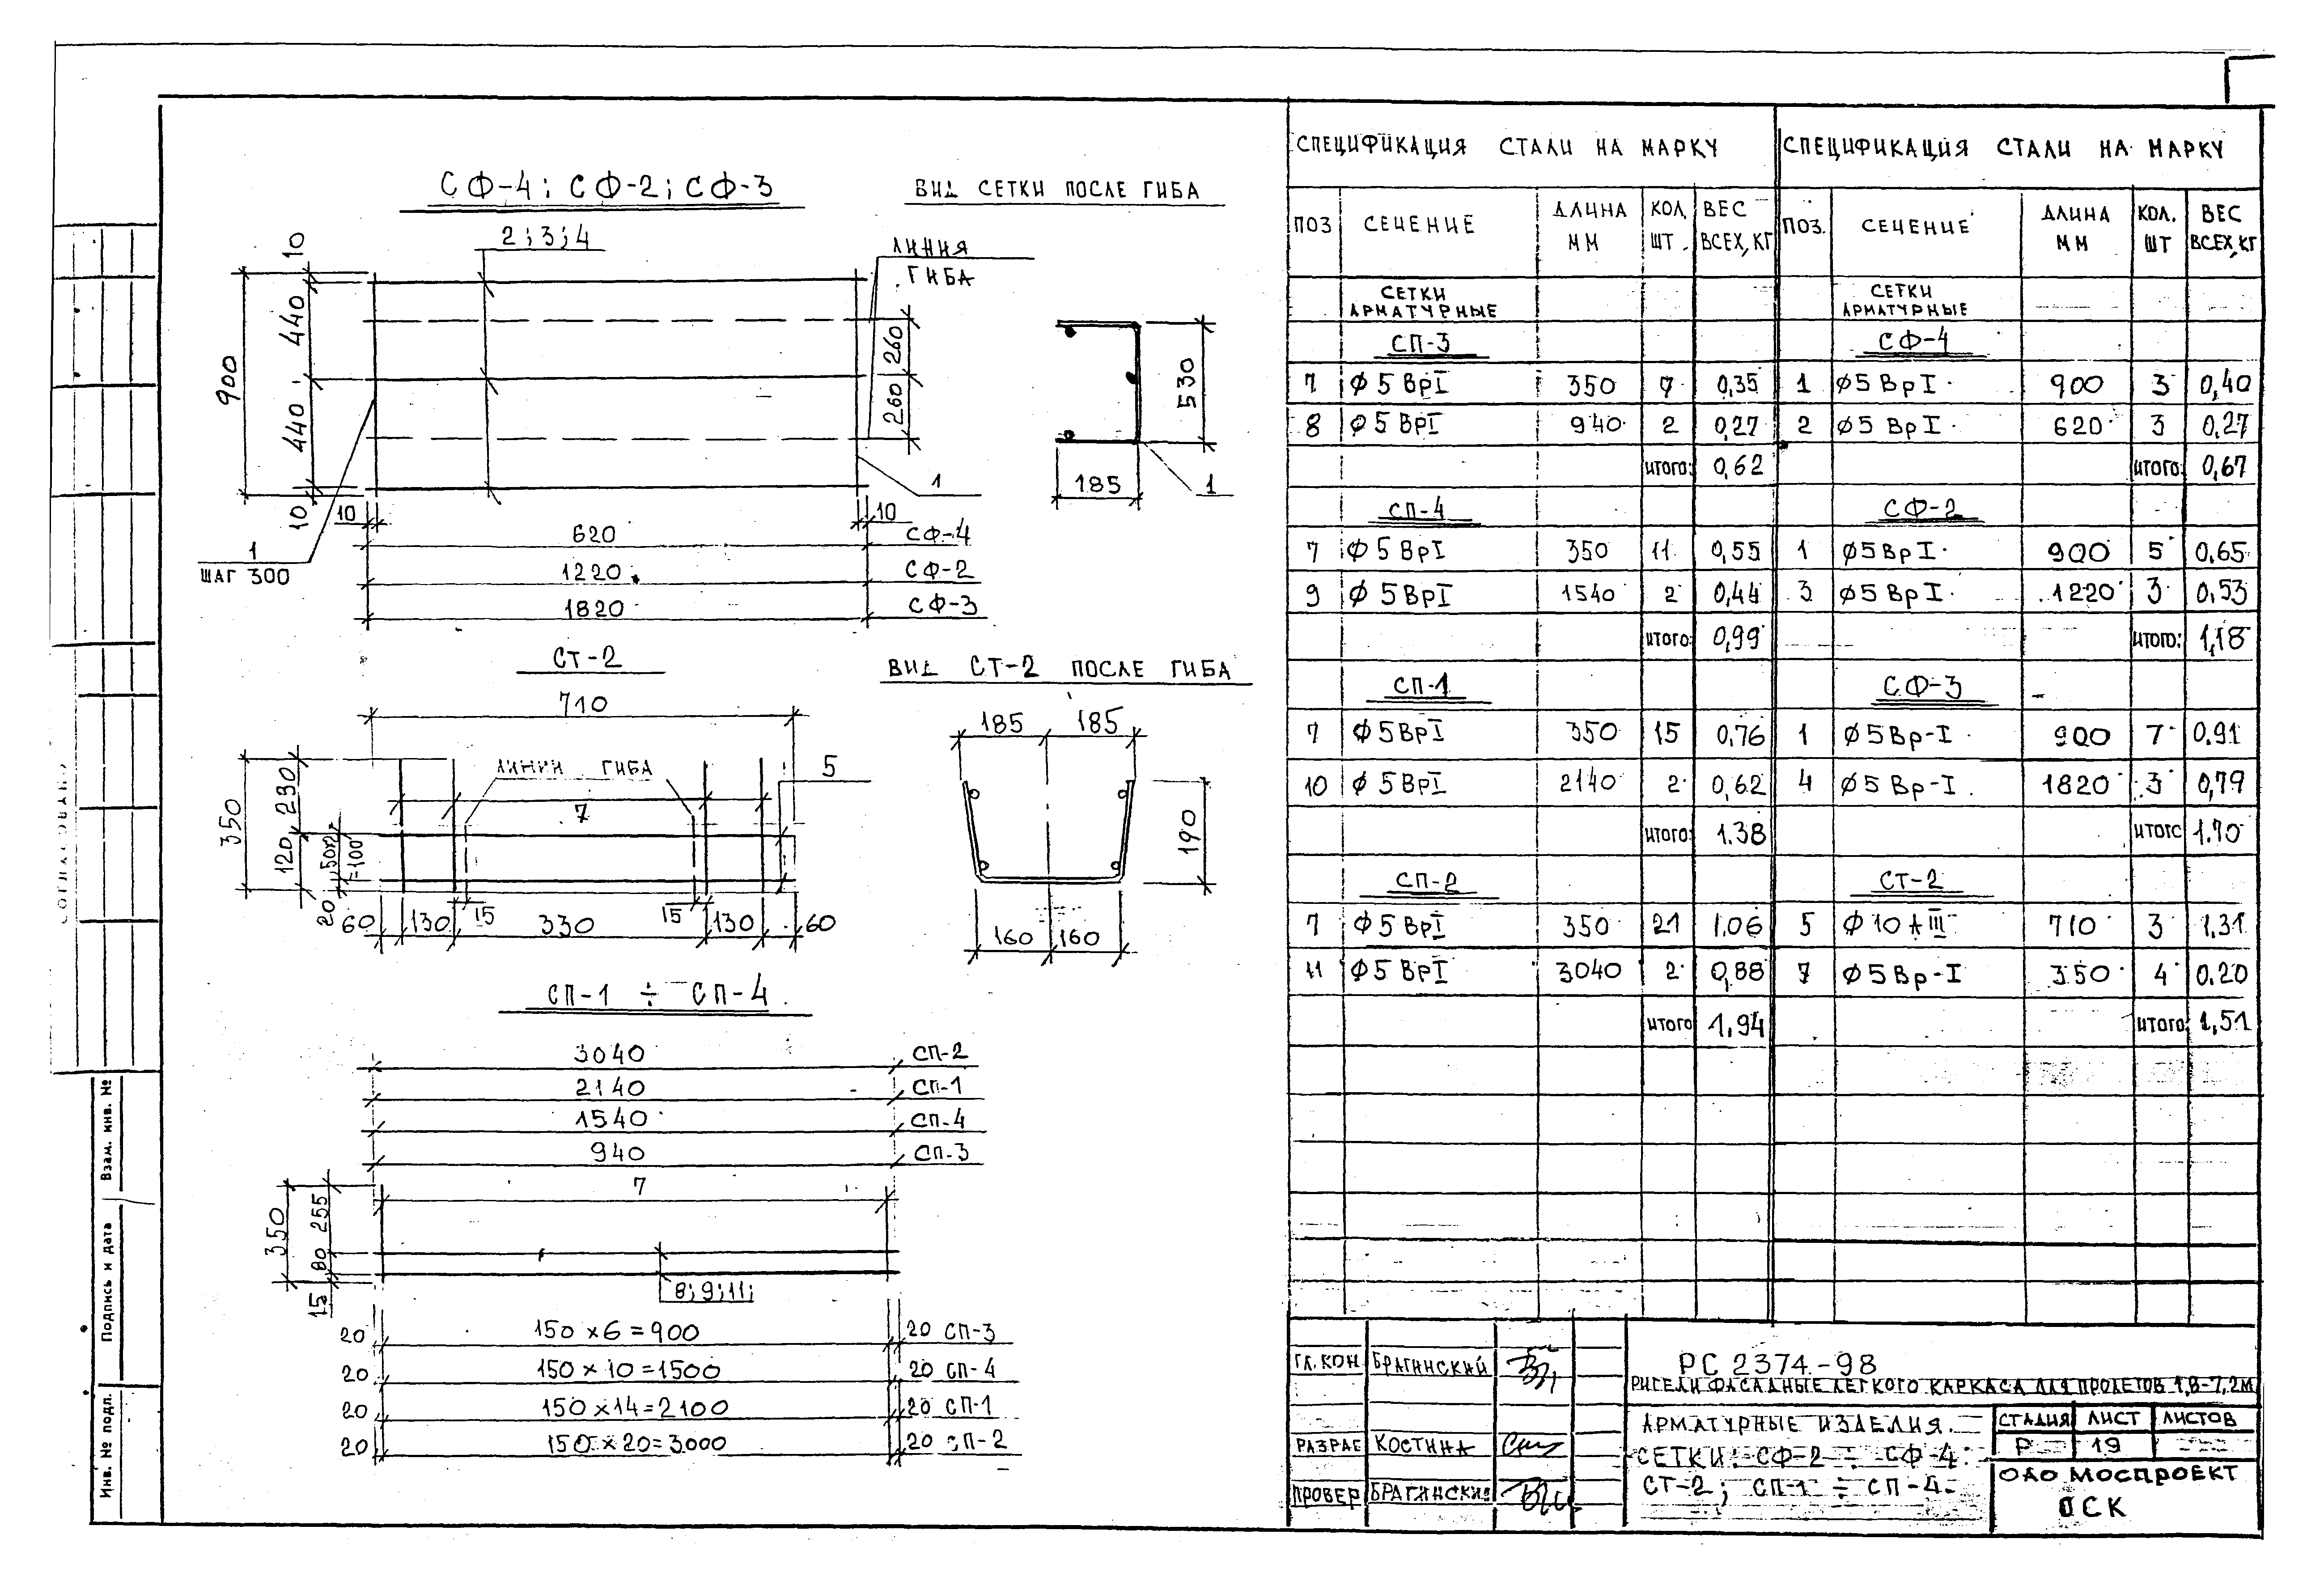 СФ-4; СФ-2; СФ-3
ВИД СЕТКИ ПОСЛЕ ГИБА
2;3;4
ЛИНИЯ
ГИБА
10
440
440
10
900
260
260
530
185
1
1
10
10
1
ШАГ 300
620 СФ-4
1220 СФ-2
1820 СФ-3
СТ-2
ВИД СТ-2 ПОСЛЕ ГИБА
710
ЛИНИИ ГИБА
5
7
350
230
120
50х2
=100
20
15
15
60 130 330 130 60
185 185
190
160 160
СП-1 ÷ СП-4
3040 СП-2
2140 СП-1
1540 СП-4
940 СП-3
7
350
255
80
15
8;9;11;
20 150 х 6 = 900 20 СП-3
20 150 х 10 = 1500 20 СП-4
20 150 х 14 = 2100 20 СП-1
20 150 х 20 = 3000 20 СП-2
СПЕЦИФИКАЦИЯ СТАЛИ НА МАРКУ
ПОЗ СЕЧЕНИЕ ДЛИНА ММ КОЛ. ШТ. ВЕС ВСЕХ, КГ
СЕТКИ
АРМАТУРНЫЕ
СП-3
7 Ф 5 ВрI 350 7 0,35
8 Ф 5 ВрI 940 2 0,27
ИТОГО: 0,62
СП-4
7 Ф 5 ВрI 350 11 0,55
9 Ф 5 ВрI 1540 2 0,44
ИТОГО: 0,99
СП-1
7 Ф 5 ВрI 350 15 0,76
10 Ф 5 ВрI 2140 2 0,62
ИТОГО: 1.38
СП-2
7 Ф 5 ВрI 350 21 1.06
11 Ф 5 ВрI 3040 2 0,88
ИТОГО 1,94
СПЕЦИФИКАЦИЯ СТАЛИ НА МАРКУ
ПОЗ. СЕЧЕНИЕ ДЛИНА ММ КОЛ. ШТ ВЕС ВСЕХ, КГ
СЕТКИ
АРМАТУРНЫЕ
СФ-4
1 Ф5 Вр I 900 3 0,40
2 Ф5 Вр I 620 3 0.27
ИТОГО: 0,67
СФ-2
1 Ф5 Вр I 900 5 0,65
3 Ф5 Вр I 1220 3 0,53
ИТОГО: 1,18
СФ-3
1 Ф 5 Вр-I 900 7 0.91
4 Ф 5 Вр-I 1820 3 0,79
ИТОГО 1.70
СТ-2
5 Ф 10 А III 710 3 1.31
7 Ф 5 Вр-I 350 4 0.20
ИТОГО: 1,51
ГЛ. КОН БРАГИНСКИЙ
РАЗРАБ КОСТИНА
ПРОВЕР БРАГИНСКИЙ
РС 2374-98
РИГЕЛИ ФАСАДНЫЕ ЛЕГКОГО КАРКАСА ДЛЯ ПРОЛЕТОВ 1,8-7,2М
АРМАТУРНЫЕ ИЗДЕЛИЯ.
СЕТКИ: СФ-2 ÷ СФ-4.
СТ-2; СП-1 ÷ СП-4.
СТАДИЯ ЛИСТ ЛИСТОВ
Р 19
ОАО МОСПРОЕКТ
ОСК
СОГЛАСОВАНО
Взам. инв. №
Подпись и дата
Инв. № подл.